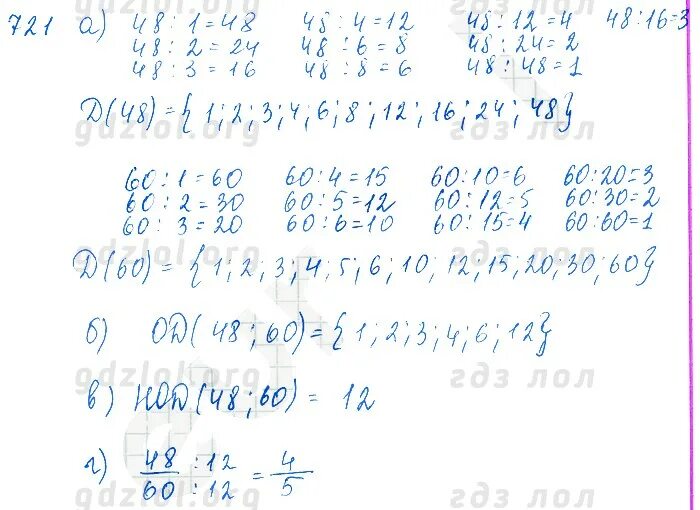 721 а) 48 : 1 = 48 48 : 4 = 12 48 : 12 = 4 48 : 16 = 3
48 : 2 = 24 48 : 6 = 8 48 : 24 = 2
48 : 3 = 16 48 : 8 = 6 48 : 48 = 1
Д(48) = {1; 2; 3; 4; 6; 8; 12; 16; 24; 48}
gdzlol.org гдз лол
60 : 1 = 60 60 : 4 = 15 60 : 10 = 6 60 : 20 = 3
60 : 2 = 30 60 : 5 = 12 60 : 12 = 5 60 : 30 = 2
60 : 3 = 20 60 : 6 = 10 60 : 15 = 4 60 : 60 = 1
gdzlol.org гдз лол
Д(60) = {1; 2; 3; 4; 5; 6; 10; 12; 15; 20; 30; 60}
б) ОД(48; 60) = {1; 2; 3; 4; 6; 12}
gdzlol.org гдз лол
в) НОД(48; 60) = 12
г) 48 : 12 / 60 : 12 = 4/5
gdzlol.org гдз лол